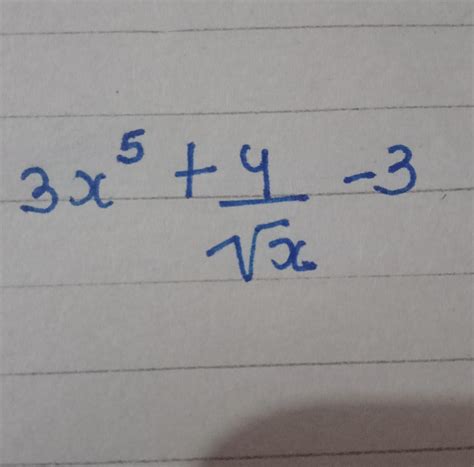 3x⁵ + 4/√x - 3